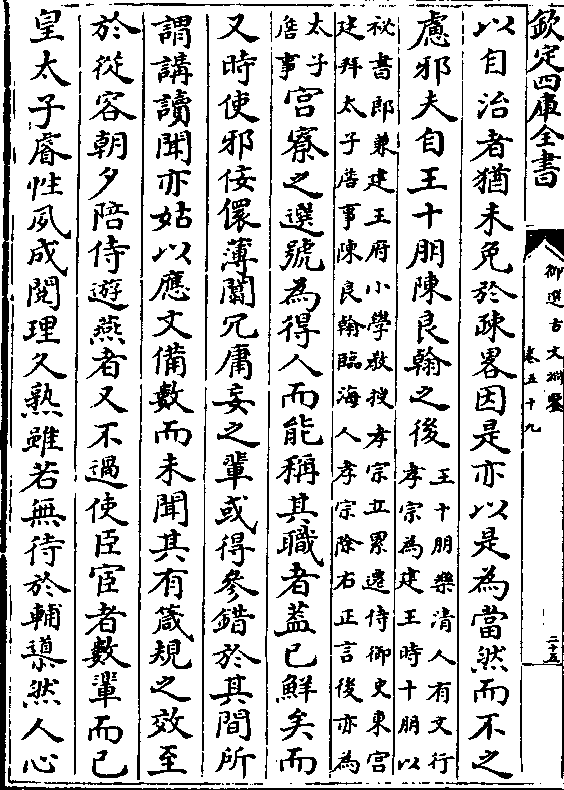 欽定四庫全書
御選古文淵鑒
卷五十九
二十五
以自治者猶未免於疎畧因是亦以是為當然而不之
慮邪夫自王十朋陳良翰之後
王十朋樂清人有文行
孝宗為建王時十朋以
祕書郎兼建王府小學教授孝宗立累遷侍御史東宮
建拜太子詹事陳良翰臨海人孝宗除右正言後亦為
太子
詹事
宫寮之選號為得人而能稱其職者蓋已鮮矣而
又時使邪佞儇薄闒冗庸妄之輩或得參錯於其間所
謂講讀聞亦姑以應文備數而未聞其有箴規之效至
於從容朝夕陪侍遊燕者又不過使臣宦者數輩而已
皇太子睿性夙成閱理久熟雖若無待於輔導然人心